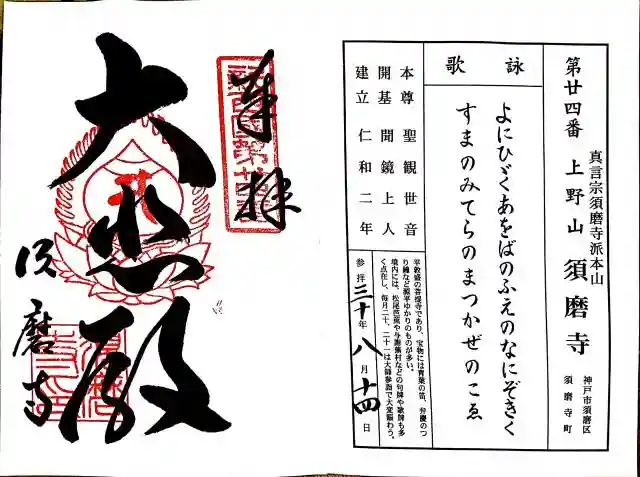 第廿四番 上野山 須磨寺
真言宗須磨寺派本山
神戸市須磨区
須磨寺町
詠歌
よにひゞくあをばのふえのなにぞきく
すまのみてらのまつかぜのこゑ
本尊 聖観世音
開基 聞鏡上人
建立 仁和二年
平敦盛の菩提寺であり、宝物には青葉の笛、弁慶のつ
り鐘など源平ゆかりのものが多い。
境内には、松尾芭蕉や与謝蕪村などの句碑や歌碑も多
く点在し、毎月二十、二十一は大師参詣で大変賑わう。
参拝三十年八月十四日
奉拝
大悲殿
須磨寺